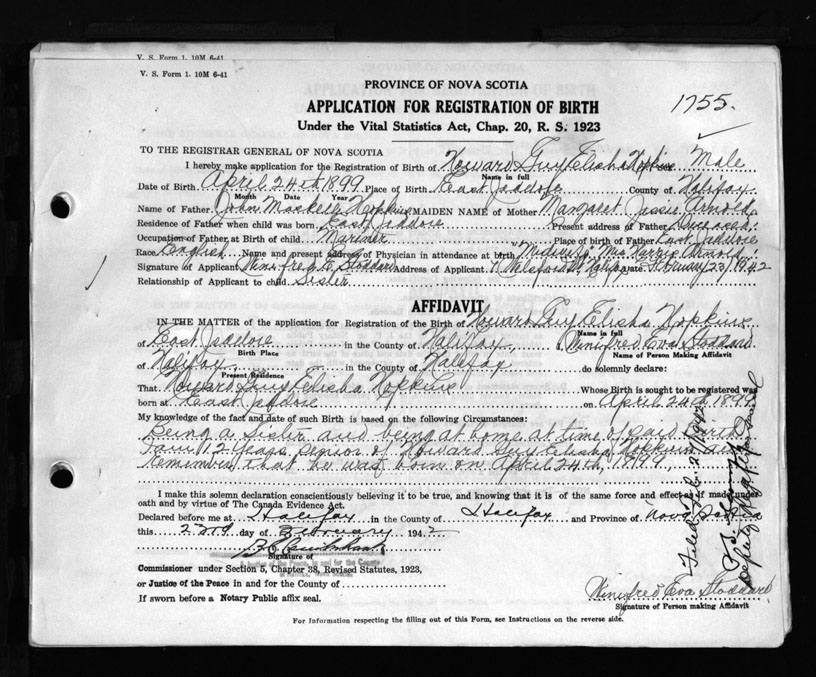 V. S. Form 1. 10M 6-41
V. S. Form 1. 10M 6-41
PROVINCE OF NOVA SCOTIA
1755.
APPLICATION FOR REGISTRATION OF BIRTH
Under the Vital Statistics Act, Chap. 20, R. S. 1923
TO THE REGISTRAR GENERAL OF NOVA SCOTIA
I hereby make application for the Registration of Birth of Howard Guy Elisha Hopkins Male
Name in full
Date of Birth April 24th 1899 Place of Birth East Jeddore County of Halifax
Month Date Year
Name of Father John Hopkins MAIDEN NAME of Mother Margaret Jessie Arnold
Residence of Father when child was born East Jeddore Present address of Father Deceased
Occupation of Father at Birth of child Mariner Place of birth of Father East Jeddore
Race English Name and present address of Physician in attendance at birth "Midwife" Mrs Arnold
Signature of Applicant Winifred E. Stoddard Address of Applicant Halifax Date February 23/1942
Relationship of Applicant to child Sister
AFFIDAVIT
IN THE MATTER of the application for Registration of the Birth of Howard Guy Elisha Hopkins
Name in full
of East Jeddore in the County of Halifax I Winifred Eva Stoddard
Birth Place Name of Person Making Affidavit
of Halifax in the County of Halifax do solemnly declare:
Present Residence
That Howard Guy Elisha Hopkins Whose Birth is sought to be registered was
born at East Jeddore on April 24th 1899
My knowledge of the fact and date of such Birth is based on the following Circumstances:
Being a sister and being at home at time of said birth I
am 12 years senior of Howard Guy Elisha Hopkins and
remember that he was born on April 24th, 1899.
I make this solemn declaration conscientiously believing it to be true, and knowing that it is of the same force and effect as if made under
oath and by virtue of The Canada Evidence Act.
Declared before me at Halifax in the County of Halifax and Province of Nova Scotia
this 23rd day of February 1942
Signature of
Commissioner under Section 5, Chapter 38, Revised Statutes, 1923,
or Justice of the Peace in and for the County of
If sworn before a Notary Public affix seal.
Winifred Eva Stoddard
Signature of Person making Affidavit
For Information respecting the filling out of this Form, see Instructions on the reverse side.
Filed Feb. 1942
Deputy Registrar General